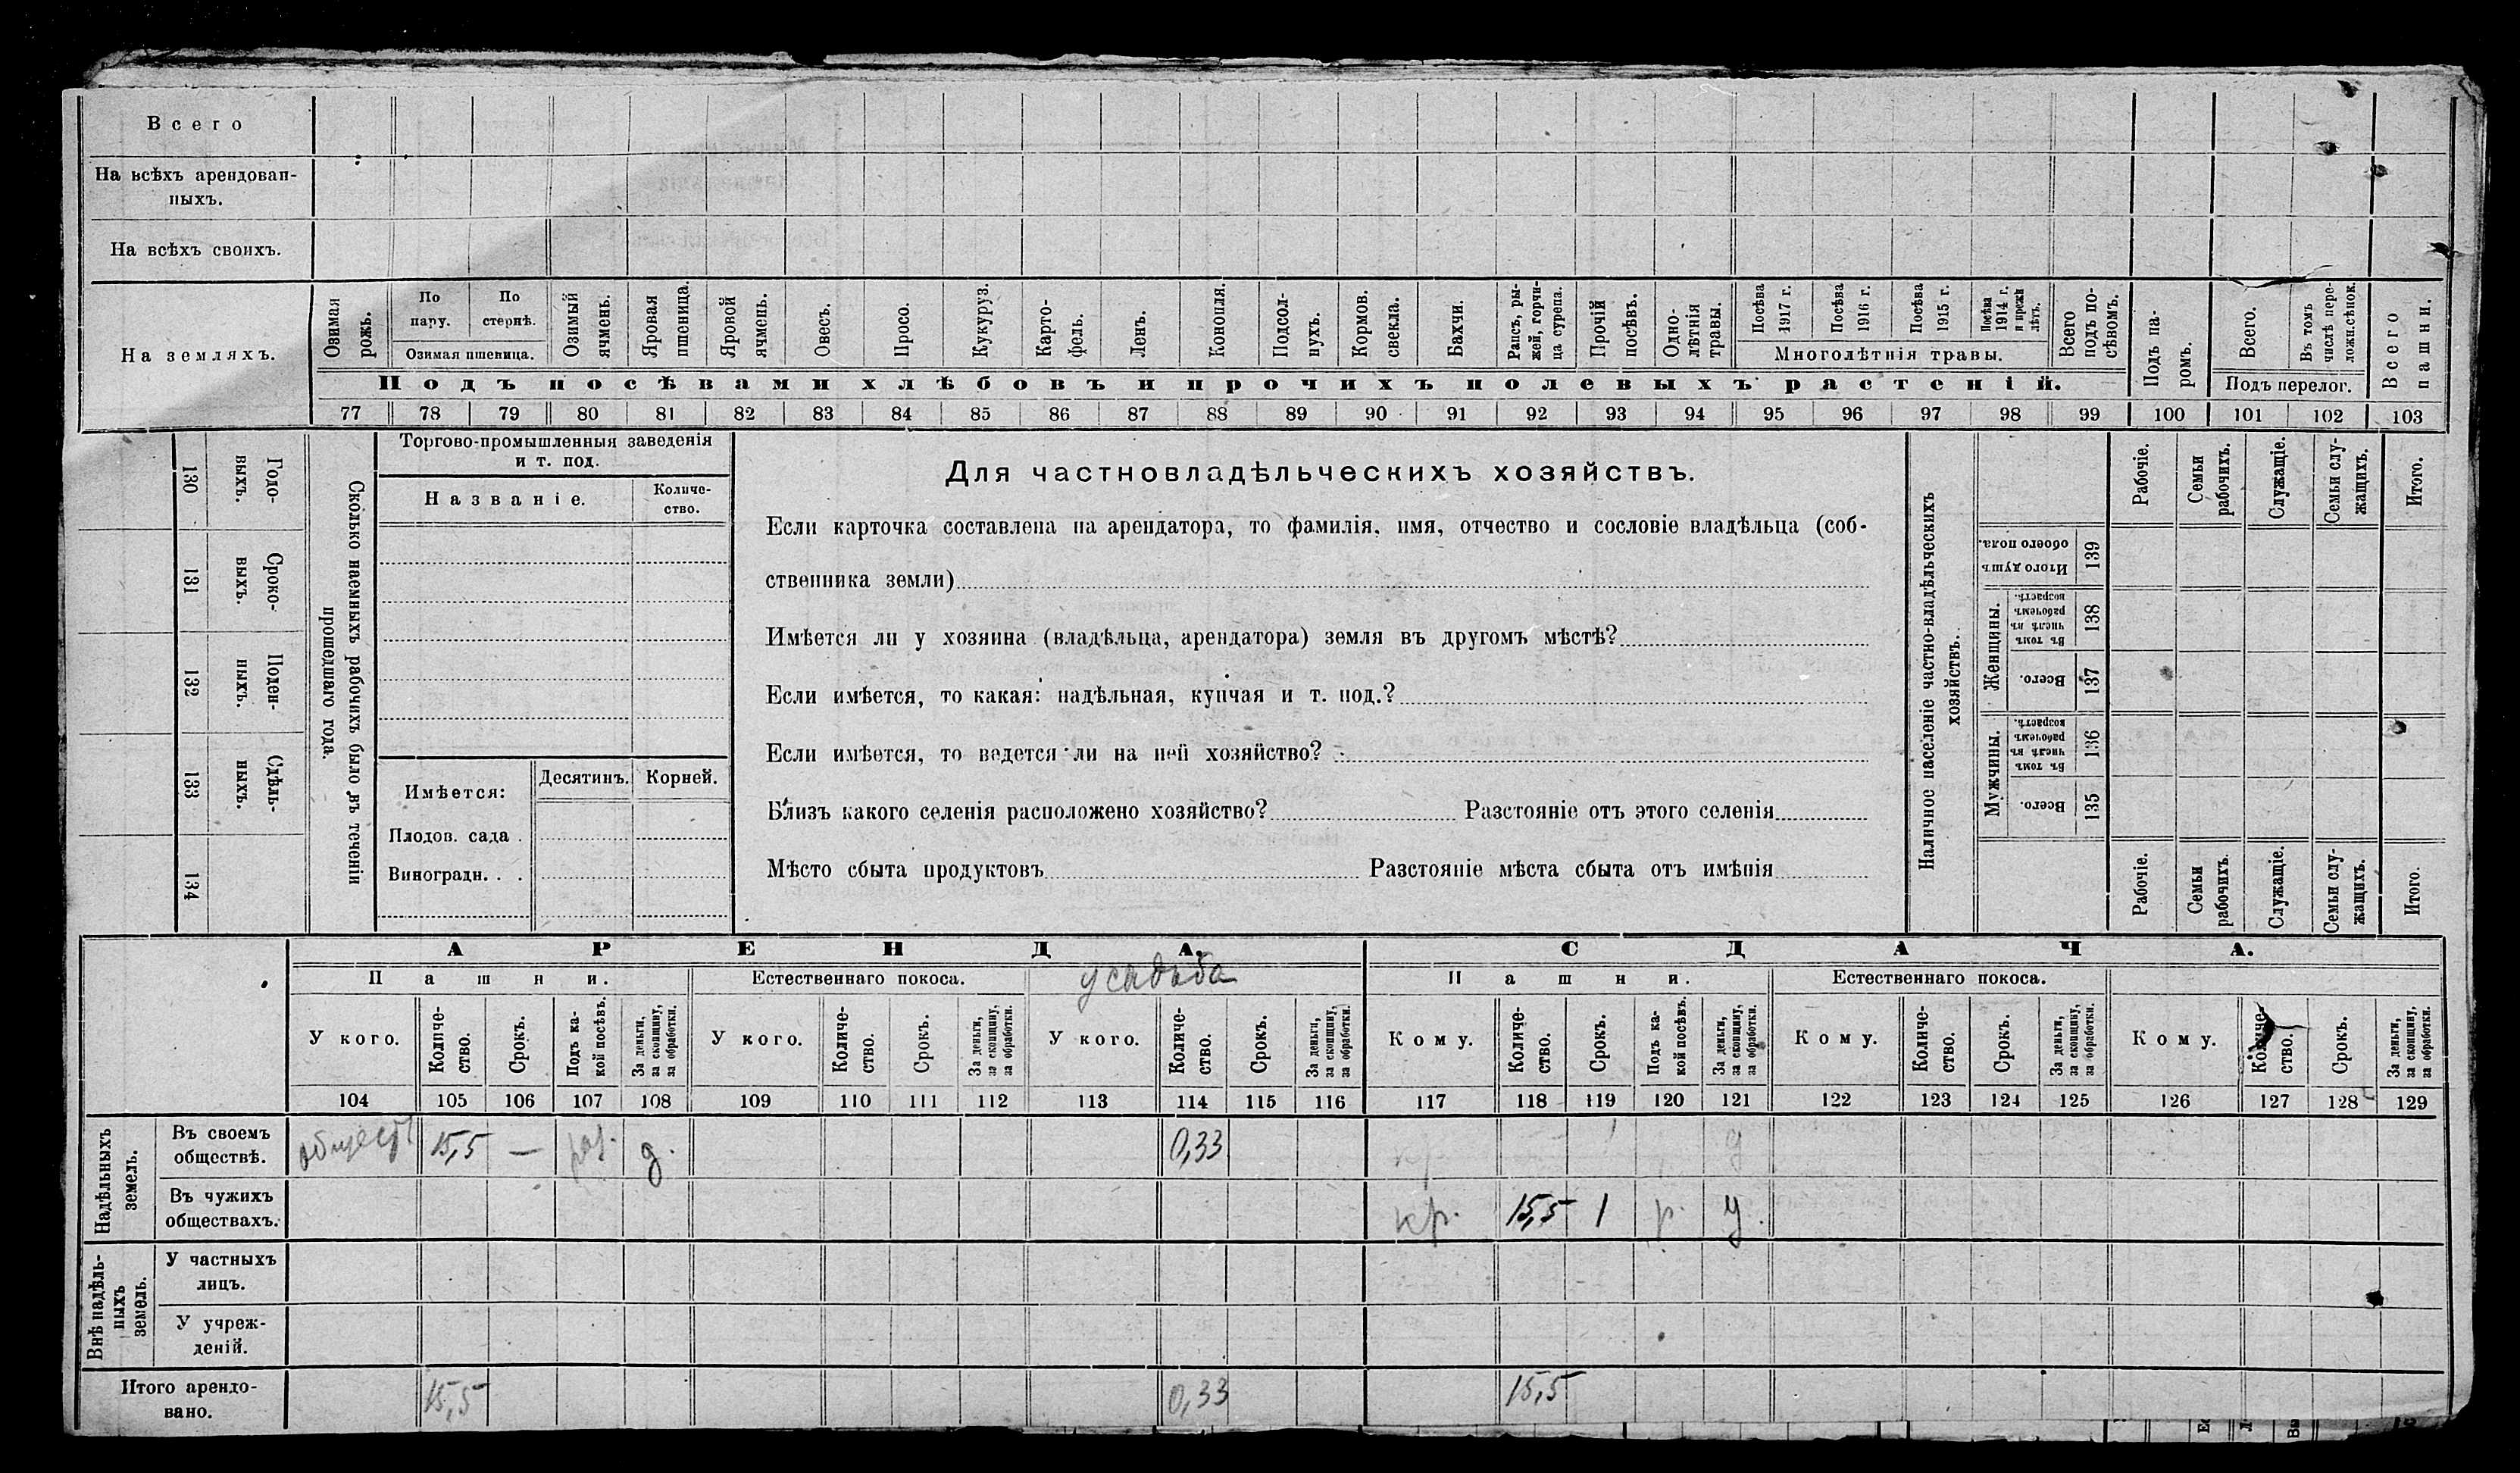 Всего
На всѣхъ арендован-
ныхъ.
На всѣхъ своихъ.
На земляхъ.
Озимая рожь.
По пару.
По стернѣ.
Озимая пшеница.
Озимый ячмень.
Яровая пшеница.
Яровой ячмень.
Овесъ.
Просо.
Кукуруз.
Карто-
фель.
Ленъ.
Конопля.
Подсол-
нухъ.
Кормов. свекла.
Бахчи.
Рапсъ, ры-
жей, горчи-
ца сурепа.
Прочій посѣвъ.
Одно-
лѣтнія травы.
Посѣва 1917 г.
Посѣва 1916 г.
Посѣва 1915 г.
Посѣва 1914 г. и прежн лѣтъ.
Многолѣтнія травы.
Всего подъ по-
сѣвомъ.
Подъ па-
ромъ.
Всего.
Въ томъ числѣ пере-
ложн.сѣнок.
Подъ перелог.
Всего пашни.
Подъ посѣвами хлѣбовъ и прочихъ полевыхъ растеній.
77 78 79 80 81 82 83 84 85 86 87 88 89 90 91 92 93 94 95 96 97 98 99 100 101 102 103
130 Годо-
выхъ.
131 Сроко-
выхъ.
132 Поден-
ныхъ.
133 Сдѣль-
ныхъ.
134
Сколько наемныхъ рабочихъ было въ теченіи
прошедшаго года.
Торгово-промышленныя заведенія
и т. под.
Названіе.
Количе-
ство.
Имѣется:
Десятинъ.
Корней.
Плодов. сада .
Виноградн. . .
Для частновладѣльческихъ хозяйствъ.
Если карточка составлена на арендатора, то фамилія, имя, отчество и сословіе владѣльца (соб-
ственника земли)
Имѣется ли у хозяина (владѣльца, арендатора) земля въ другомъ мѣстѣ?
Если имѣется, то какая: надѣльная, купчая и т. под.?
Если имѣется, то ведется ли на ней хозяйство?
Близъ какого селенія расположено хозяйство? Разстояніе отъ этого селенія
Мѣсто сбыта продуктовъ Разстояніе мѣста сбыта отъ имѣнія
Наличное населеніе частно-владѣльческихъ
хозяйствъ.
Рабочіе.
Семьи рабочихъ.
Служащіе.
Семьи слу-
жащихъ.
Итого.
Итого душъ обоего пола. 139
Женщины.
Въ томъ числѣ въ рабочемъ возрастѣ. 138
Всего. 137
Мужчины.
Въ томъ числѣ въ рабочемъ возрастѣ. 136
Всего. 135
Рабочіе.
Семьи рабочихъ.
Служащіе.
Семьи слу-
жащихъ.
Итого.
АРЕНДА. СДАЧА.
Пашни. Естественнаго покоса. усадьба Пашни. Естественнаго покоса.
У кого. Количе-
ство. Срокъ. Подъ ка-
кой посѣвъ. За деньги, за скопщину, за обработки.
У кого. Количе-
ство. Срокъ. За деньги, за скопщину, за обработки.
У кого. Количе-
ство. Срокъ. За деньги, за скопщину, за обработки.
Кому. Количе-
ство. Срокъ. Подъ ка-
кой посѣвъ. За деньги, за скопщину, за обработки.
Кому. Количе-
ство. Срокъ. За деньги, за скопщину, за обработки.
Кому. Количе-
ство. Срокъ. За деньги, за скопщину, за обработки.
104 105 106 107 108 109 110 111 112 113 114 115 116 117 118 119 120 121 122 123 124 125 126 127 128 129
Надѣльныхъ земель.
Въ своемъ
обществѣ.
общест 15,5 — раз. д. 0,33 кр. д
Въ чужихъ
обществахъ.
кр. 15,5 1 р. д.
Внѣ надѣль-
ныхъ земель.
У частныхъ
лицъ.
У учреж-
деній.
Итого арендо-
вано.
15,5 0,33 15,5